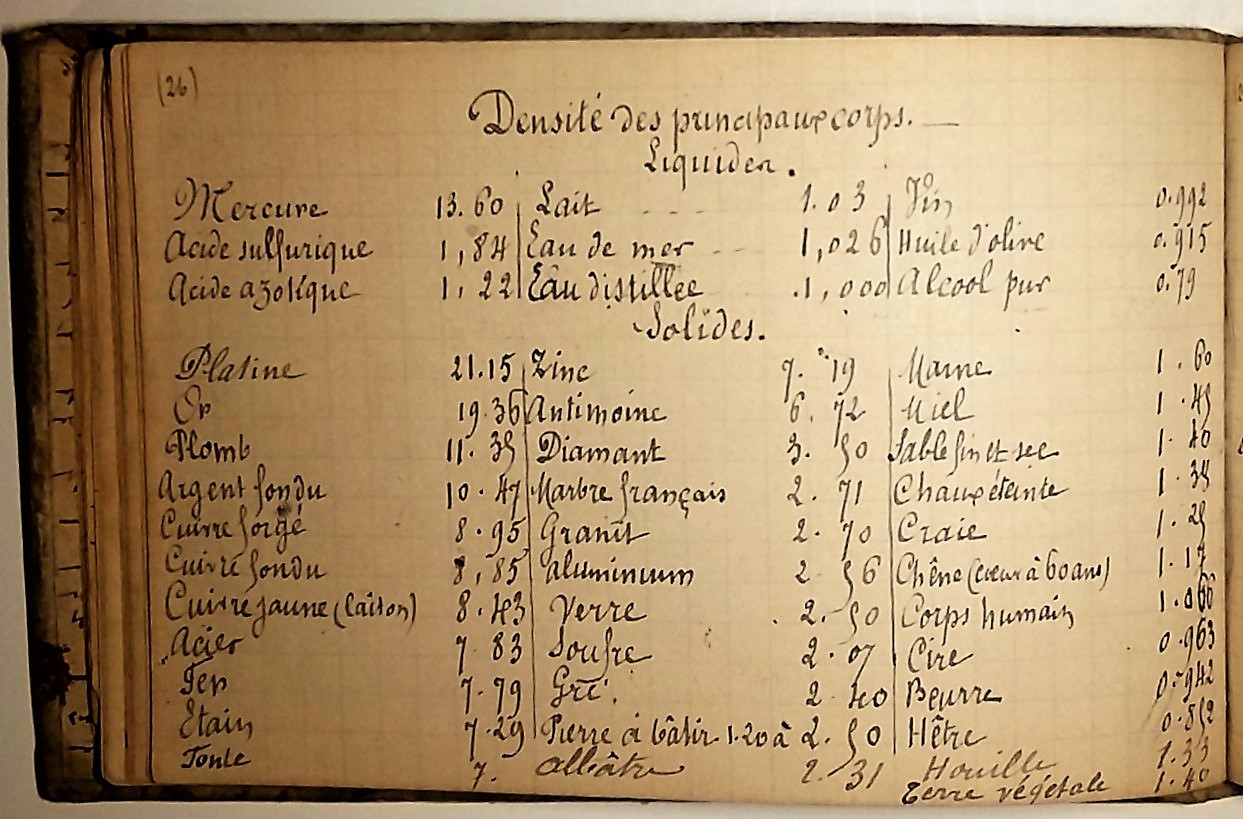 (26)
Densité des principaux corps. —
Liquides.
Mercure 13.60 Lait - - - 1.03 Vin 0.992
Acide sulfurique 1,84 Eau de mer - - 1,026 Huile d'olive 0.915
Acide azotique 1,22 Eau distillée 1,000 Alcool pur 0.79
Solides.
Platine 21.15 Zinc 7.19 Marne 1.60
Or 19.36 Antimoine 6.72 Miel 1.45
Plomb 11.35 Diamant 3.50 Sable fin et sec 1.40
Argent fondu 10.47 Marbre français 2.71 Chaux éteinte 1.35
Cuivre forgé 8.95 Granit 2.70 Craie 1.25
Cuivre fondu 8,85 aluminium 2.56 Chêne (cœur à 60 ans) 1.17
Cuivre jaune (laiton) 8.43 Verre 2.50 Corps humain 1.066
Acier 7.83 Soufre 2.07 Cire 0.963
Fer 7.79 Gré. 2.40 Beurre 0.942
Etain 7.29 Pierre à bâtir 1.20 à 2.50 Hêtre 0.852
Fonte 7. albâtre 2.31 Houille 1.33
Terre végétale 1.40